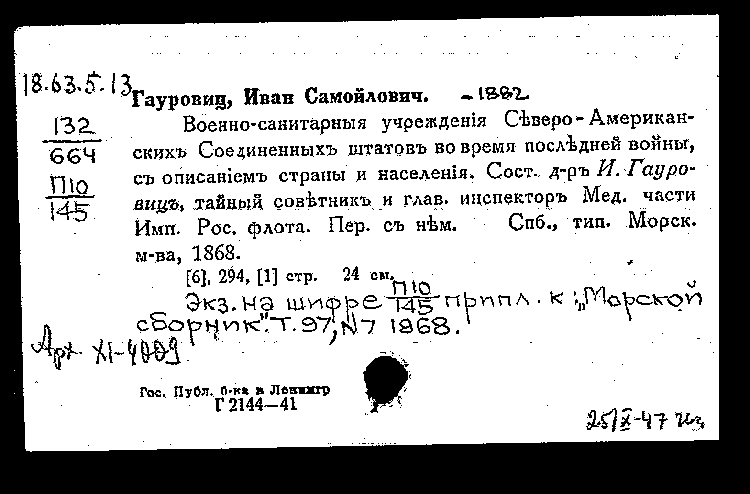 18.63.5.13
Гауровиц, Иван Самойлович. -1882
132
664
П10
145
Военно-санитарныя учрежденія Сѣверо-Американ-
скихъ Соединенныхъ штатовъ во время послѣдней войны,
съ описаніемъ страны и населенія. Сост. д-ръ И. Гауро-
вицъ, тайный совѣтникъ и глав. инспекторъ Мед. части
Имп. Рос. флота. Пер. съ нѣм. Спб., тип. Морск.
м-ва, 1868.
[6], 294, [1] стр. 24 см.
Экз. на шифре П10/145 приппл. к: „Морской
сборник". Т. 97, N7 1868.
Арх. XI-4009
Гос. Публ. б-ка в Ленингр
Г 2144—41
25/X-47